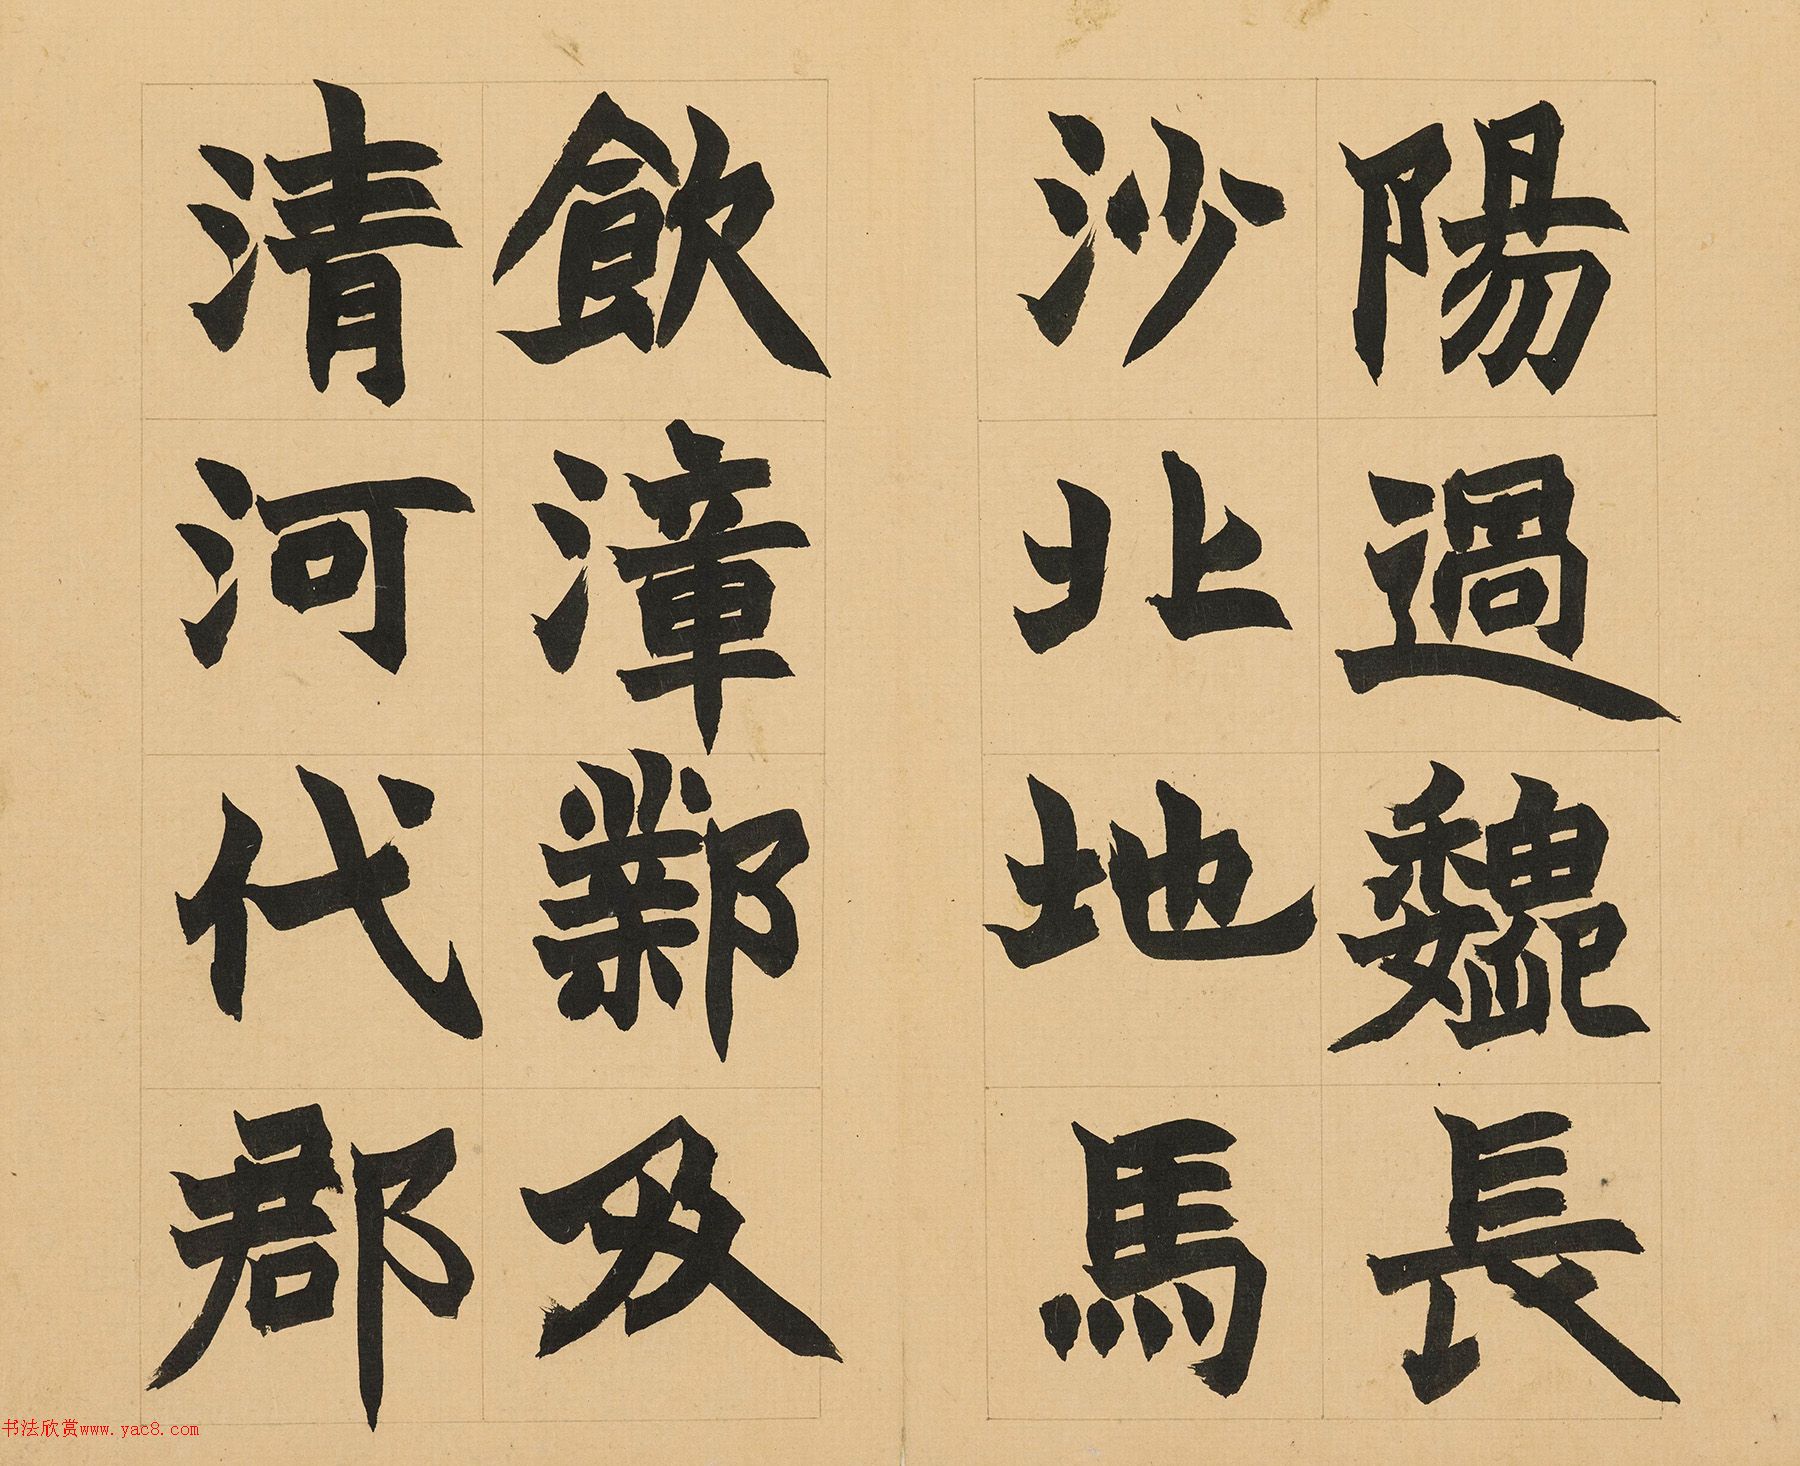 陽過魏長
沙北地馬
飲漳鄴及
清河代郡
书法欣赏www.yac8.com